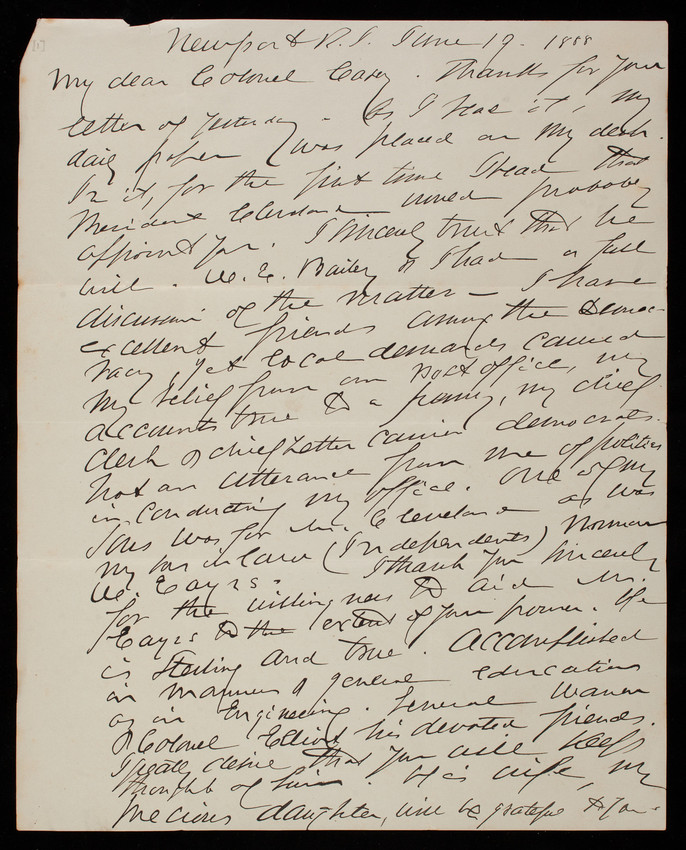 [1]
Newport R.I. June 19. 1888
My dear Colonel Casey. Thanks for your
letter of yesterday. As I read it, my
daily paper was placed on my desk.
In it, for the first time I read that
President Cleveland would probably
appoint you. I sincerely trust that he
will. W. E. Bailey & I had a full
discussion of the matter - I have
excellent friends among the Democ-
racy, yet local demands caused
my relief from our Post office, my
accounts true to a penny, my chief
clerk & chief letter carrier democrats.
Not an utterance from me of politics
in conducting my office. One of my
sons was for Mr. Cleveland as was
my son in law (Independents) Norman
W. Eayrs. I thank you sincerely
for the willingness to aid Mr.
Eayrs to the extent of your power. He
is sterling and true. Accomplished
in manners & general education
as in Engineering. General Warren
& Colonel Elliot his devoted friends.
I greatly desire that you will keep
thought of him. His wife, my
precious daughter, will be grateful to you.